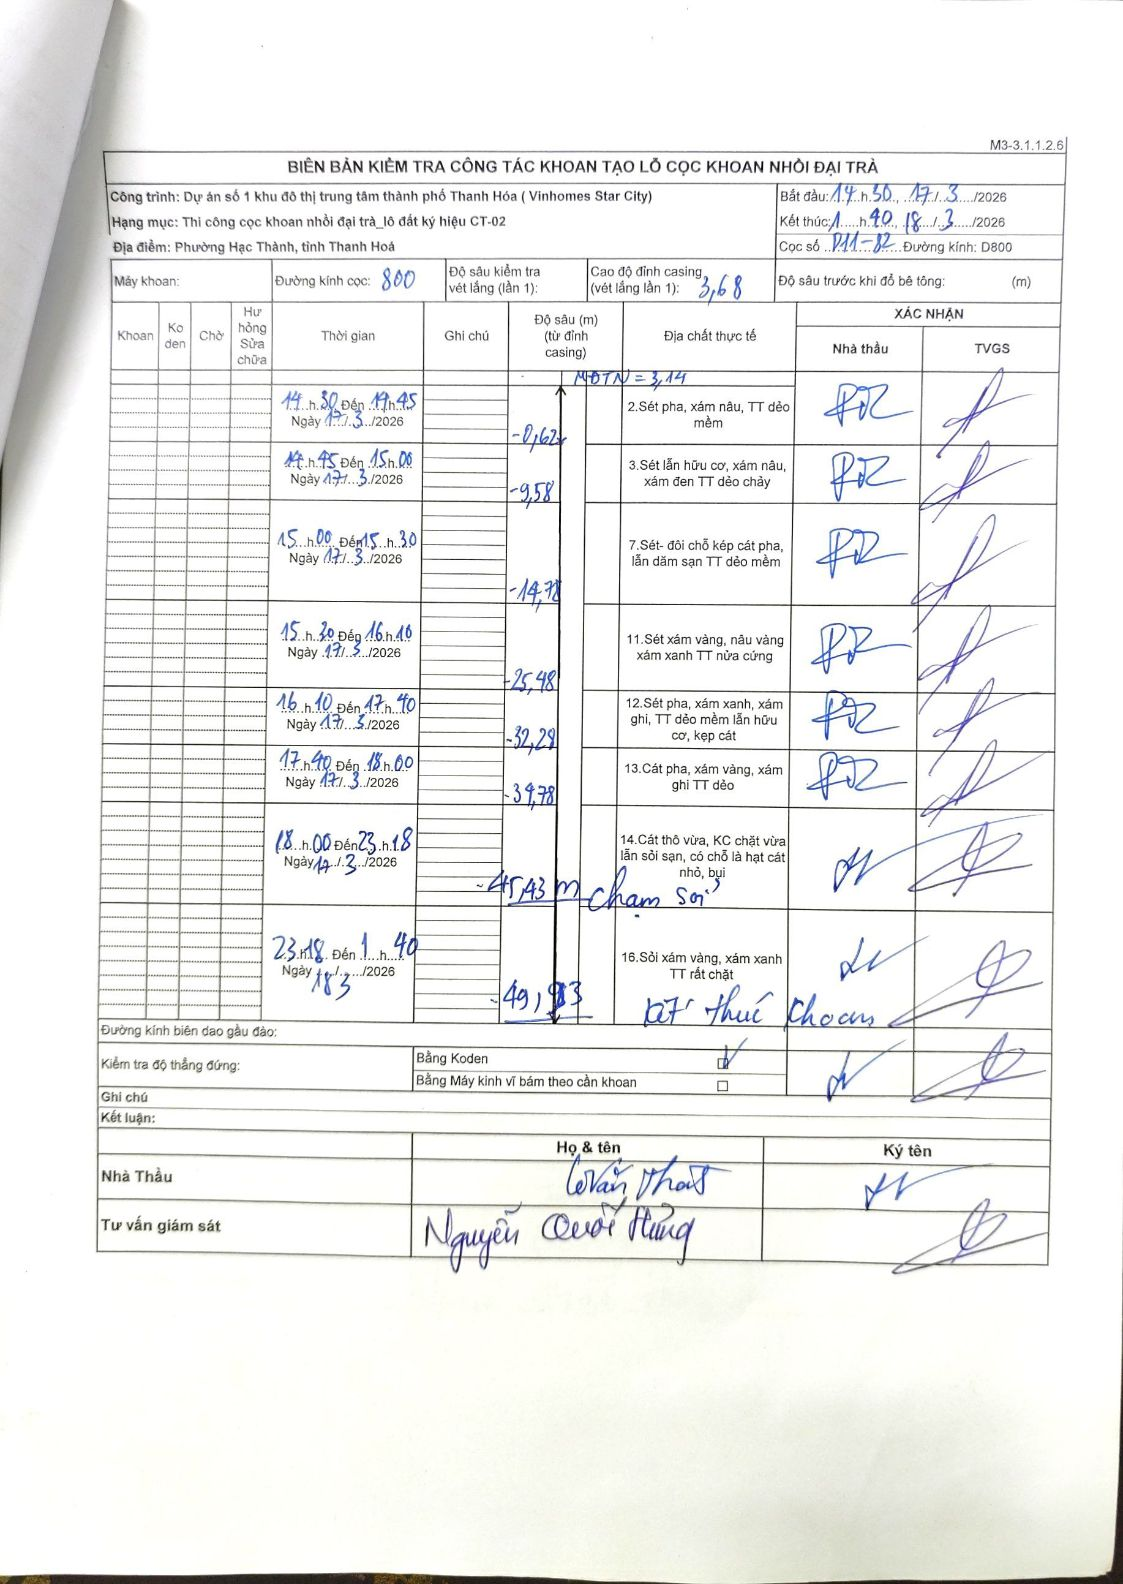 M3-3.1.1.2.6
BIÊN BẢN KIỂM TRA CÔNG TÁC KHOAN TẠO LỖ CỌC KHOAN NHỒI ĐẠI TRÀ
Công trình: Dự án số 1 khu đô thị trung tâm thành phố Thanh Hóa ( Vinhomes Star City)
Hạng mục: Thi công cọc khoan nhồi đại trà_lô đất ký hiệu CT-02
Địa điểm: Phường Hạc Thành, tỉnh Thanh Hoá
Bắt đầu: 14 h 30, 17/3/2026
Kết thúc: 1 h 40, 18/3/2026
Cọc số P11-82 Đường kính: D800
Máy khoan:
Đường kính cọc: 800
Độ sâu kiểm tra vét lắng (lần 1):
Cao độ đỉnh casing (vét lắng lần 1): 3,68
Độ sâu trước khi đổ bê tông: (m)
Khoan Ko den Chờ Hư hỏng Sửa chữa Thời gian Ghi chú Độ sâu (m) (từ đỉnh casing) Địa chất thực tế XÁC NHẬN
Nhà thầu TVGS
MĐTN = 3,14
14 h 30 Đến 14 h 45
Ngày 17/3/2026
-0,62
2.Sét pha, xám nâu, TT dẻo mềm
14 h 45 Đến 15 h 00
Ngày 17/3/2026
-9,58
3.Sét lẫn hữu cơ, xám nâu, xám đen TT dẻo chảy
15 h 00 Đến 15 h 30
Ngày 17/3/2026
-14,78
7.Sét- đôi chỗ kép cát pha, lẫn dăm sạn TT dẻo mềm
15 h 30 Đến 16 h 10
Ngày 17/3/2026
-25,48
11.Sét xám vàng, nâu vàng xám xanh TT nửa cứng
16 h 10 Đến 17 h 40
Ngày 17/3/2026
-32,28
12.Sét pha, xám xanh, xám ghi, TT dẻo mềm lẫn hữu cơ, kẹp cát
17 h 40 Đến 18 h 00
Ngày 17/3/2026
-39,78
13.Cát pha, xám vàng, xám ghi TT dẻo
18 h 00 Đến 23 h 18
Ngày 17/3/2026
14.Cát thô vừa, KC chặt vừa lẫn sỏi sạn, có chỗ là hạt cát nhỏ, bụi
-45,43 m Chạm sỏi
23 h 18 Đến 1 h 40
Ngày 18/3/2026
16.Sỏi xám vàng, xám xanh TT rất chặt
kết thúc khoan
Đường kính biên dao gầu đào:
Kiểm tra độ thẳng đứng:
Bằng Koden ☑
Bằng Máy kinh vĩ bám theo cần khoan ☐
Ghi chú
Kết luận:
Họ & tên Ký tên
Nhà Thầu
Tư vấn giám sát Nguyễn Quốc Hùng